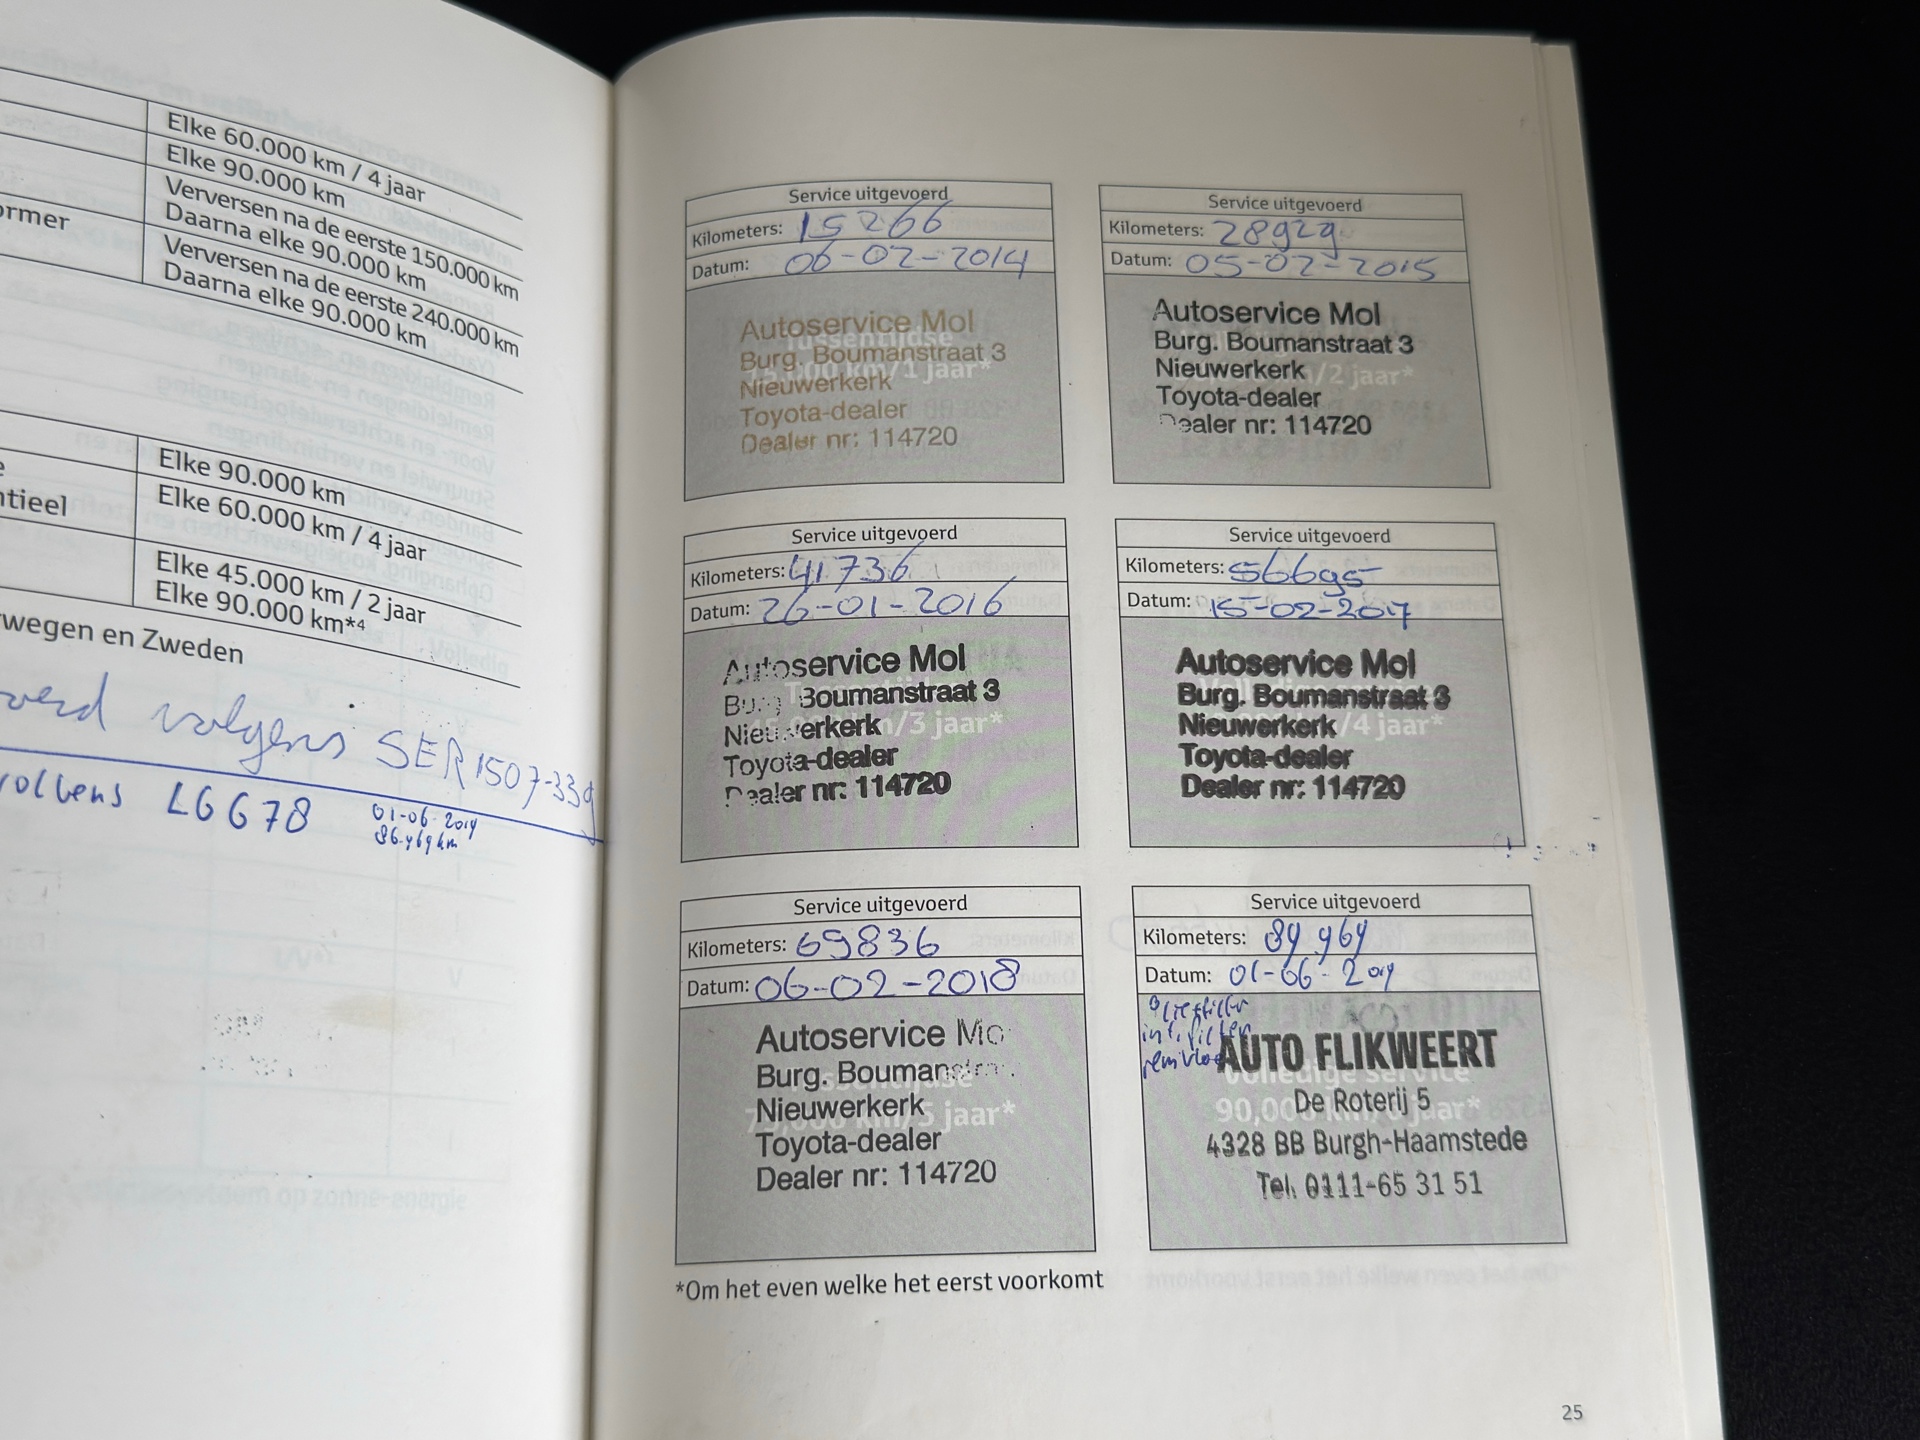 Elke 60.000 km / 4 jaar
Elke 90.000 km
Verversen na de eerste 150.000 km
Daarna elke 90.000 km
ormer
Verversen na de eerste 240.000 km
Daarna elke 90.000 km
Elke 90.000 km
ntieel
Elke 60.000 km / 4 jaar
Elke 45.000 km / 2 jaar
Elke 90.000 km*4
wegen en Zweden
oerd volgens SER1507-339
LGG78
01-06-2019
Service uitgevoerd
Kilometers: 15266
Datum: 06-02-2014
Autoservice Mol
Tussentijdse
Burg. Boumanstraat 3
15.000 km/1 jaar*
Nieuwerkerk
Toyota-dealer
Dealer nr: 114720
Service uitgevoerd
Kilometers: 28929
Datum: 05-02-2015
Autoservice Mol
Burg. Boumanstraat 3
Nieuwerkerk
km/2 jaar*
Toyota-dealer
Dealer nr: 114720
Service uitgevoerd
Kilometers: 41736
Datum: 26-01-2016
Autoservice Mol
Burg. Boumanstraat 3
Nieuwerkerk
km/3 jaar*
Toyota-dealer
Dealer nr: 114720
Service uitgevoerd
Kilometers: 56695
Datum: 15-02-2017
Autoservice Mol
Burg. Boumanstraat 3
Nieuwerkerk
/4 jaar*
Toyota-dealer
Dealer nr: 114720
Service uitgevoerd
Kilometers: 69836
Datum: 06-02-2018
Autoservice Mo
Burg. Boumanstra
Nieuwerkerk
km/5 jaar*
Toyota-dealer
Dealer nr: 114720
Service uitgevoerd
Kilometers:
Datum: 01-06-2019
oliefilter
int. filter
AUTO FLIKWEERT
Volledige service
De Roterij 5
90.000 jaar*
4328 BB Burgh-Haamstede
Tel. 0111-65 31 51
*Om het even welke het eerst voorkomt
25